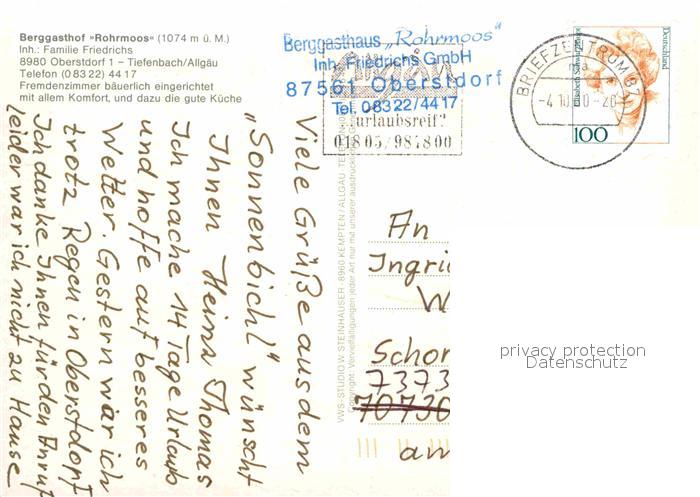 Berggasthof »Rohrmoos« (1074 m ü. M.)
Inh.: Familie Friedrichs
8980 Oberstdorf 1 – Tiefenbach/Allgäu
Telefon (0 83 22) 44 17
Fremdenzimmer bäuerlich eingerichtet
mit allem Komfort, und dazu die gute Küche
Berggasthaus „Rohrmoos"
Inh. Friedrichs GmbH
87561 Oberstdorf
Tel. 08322/4417
urlaubsreif?
01805/984800
BRIEFZENTRUM 87
ma
-20
Elisabeth Schwarzhaupt
Deutschland
100
Viele Grüße aus dem
„Sonnenbichl" wünscht
Ihnen Heinz Thomas
Ich mache 14 Tage Urlaub
und hoffe auf besseres
Wetter. Gestern war ich
trotz Regen in Oberstdorf
Ich danke Ihnen für den Anruf
leider war ich nicht zu Hause
VWS-STUDIO W. STEINHAUSER · 8960 KEMPTEN/ALLGÄU ·
Copyright: Vervielfältigungen jeder Art nur mit unserer
An
Ingri
W
Schor
7373
70736
am
privacy protection
Datenschutz